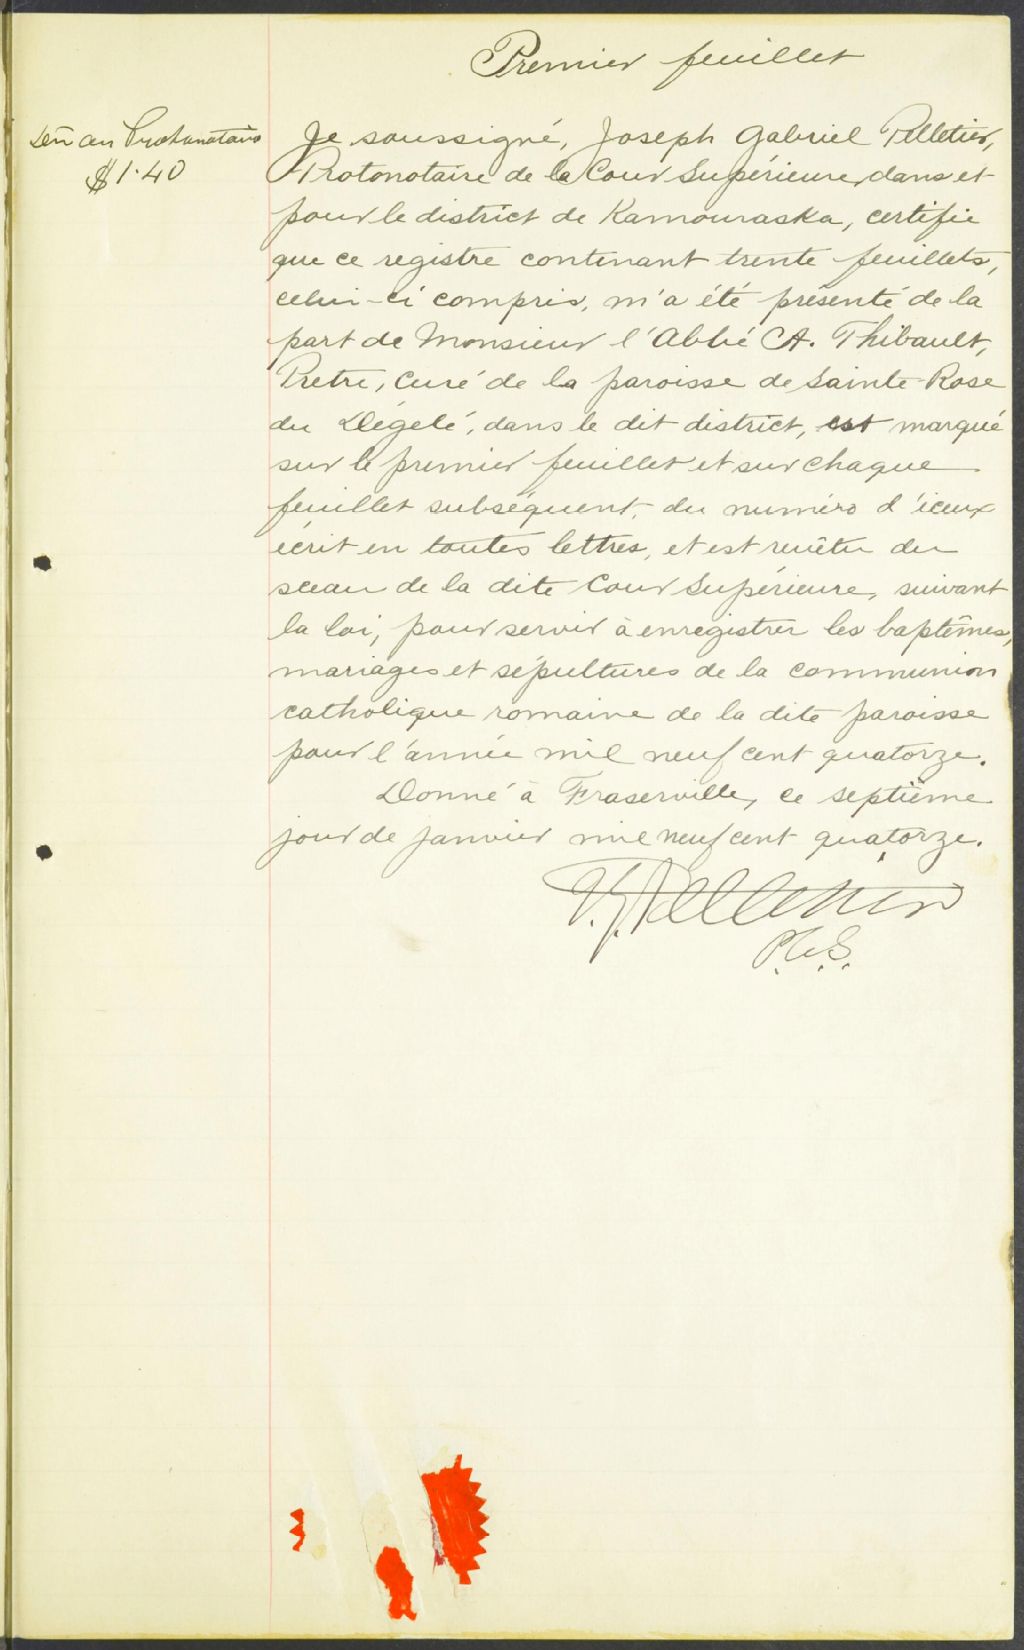 Premier feuillet
Dû au Protonotaire
$1.40
Je soussigné, Joseph Gabriel Pelletier,
Protonotaire de la Cour Supérieure, dans et
pour le district de Kamouraska, certifie
que ce registre contenant trente feuillets,
celui-ci compris, m'a été présenté de la
part de Monsieur l'Abbé A. Thibault,
Pretre, Curé de la paroisse de Sainte-Rose
du Dégelé, dans le dit district, est marqué
sur le premier feuillet et sur chaque
feuillet subséquent, du numéro d'iceux
écrit en toutes lettres, et est revêtu du
sceau de la dite Cour Supérieure, suivant
la loi, pour servir à enregistrer les baptêmes,
mariages et sépultures de la communion
catholique romaine de la dite paroisse
pour l'année mil neuf cent quatorze.
Donné à Fraserville, ce septième
jour de janvier mil neuf cent quatorze.
J. G. Pelletier
P.C.S.